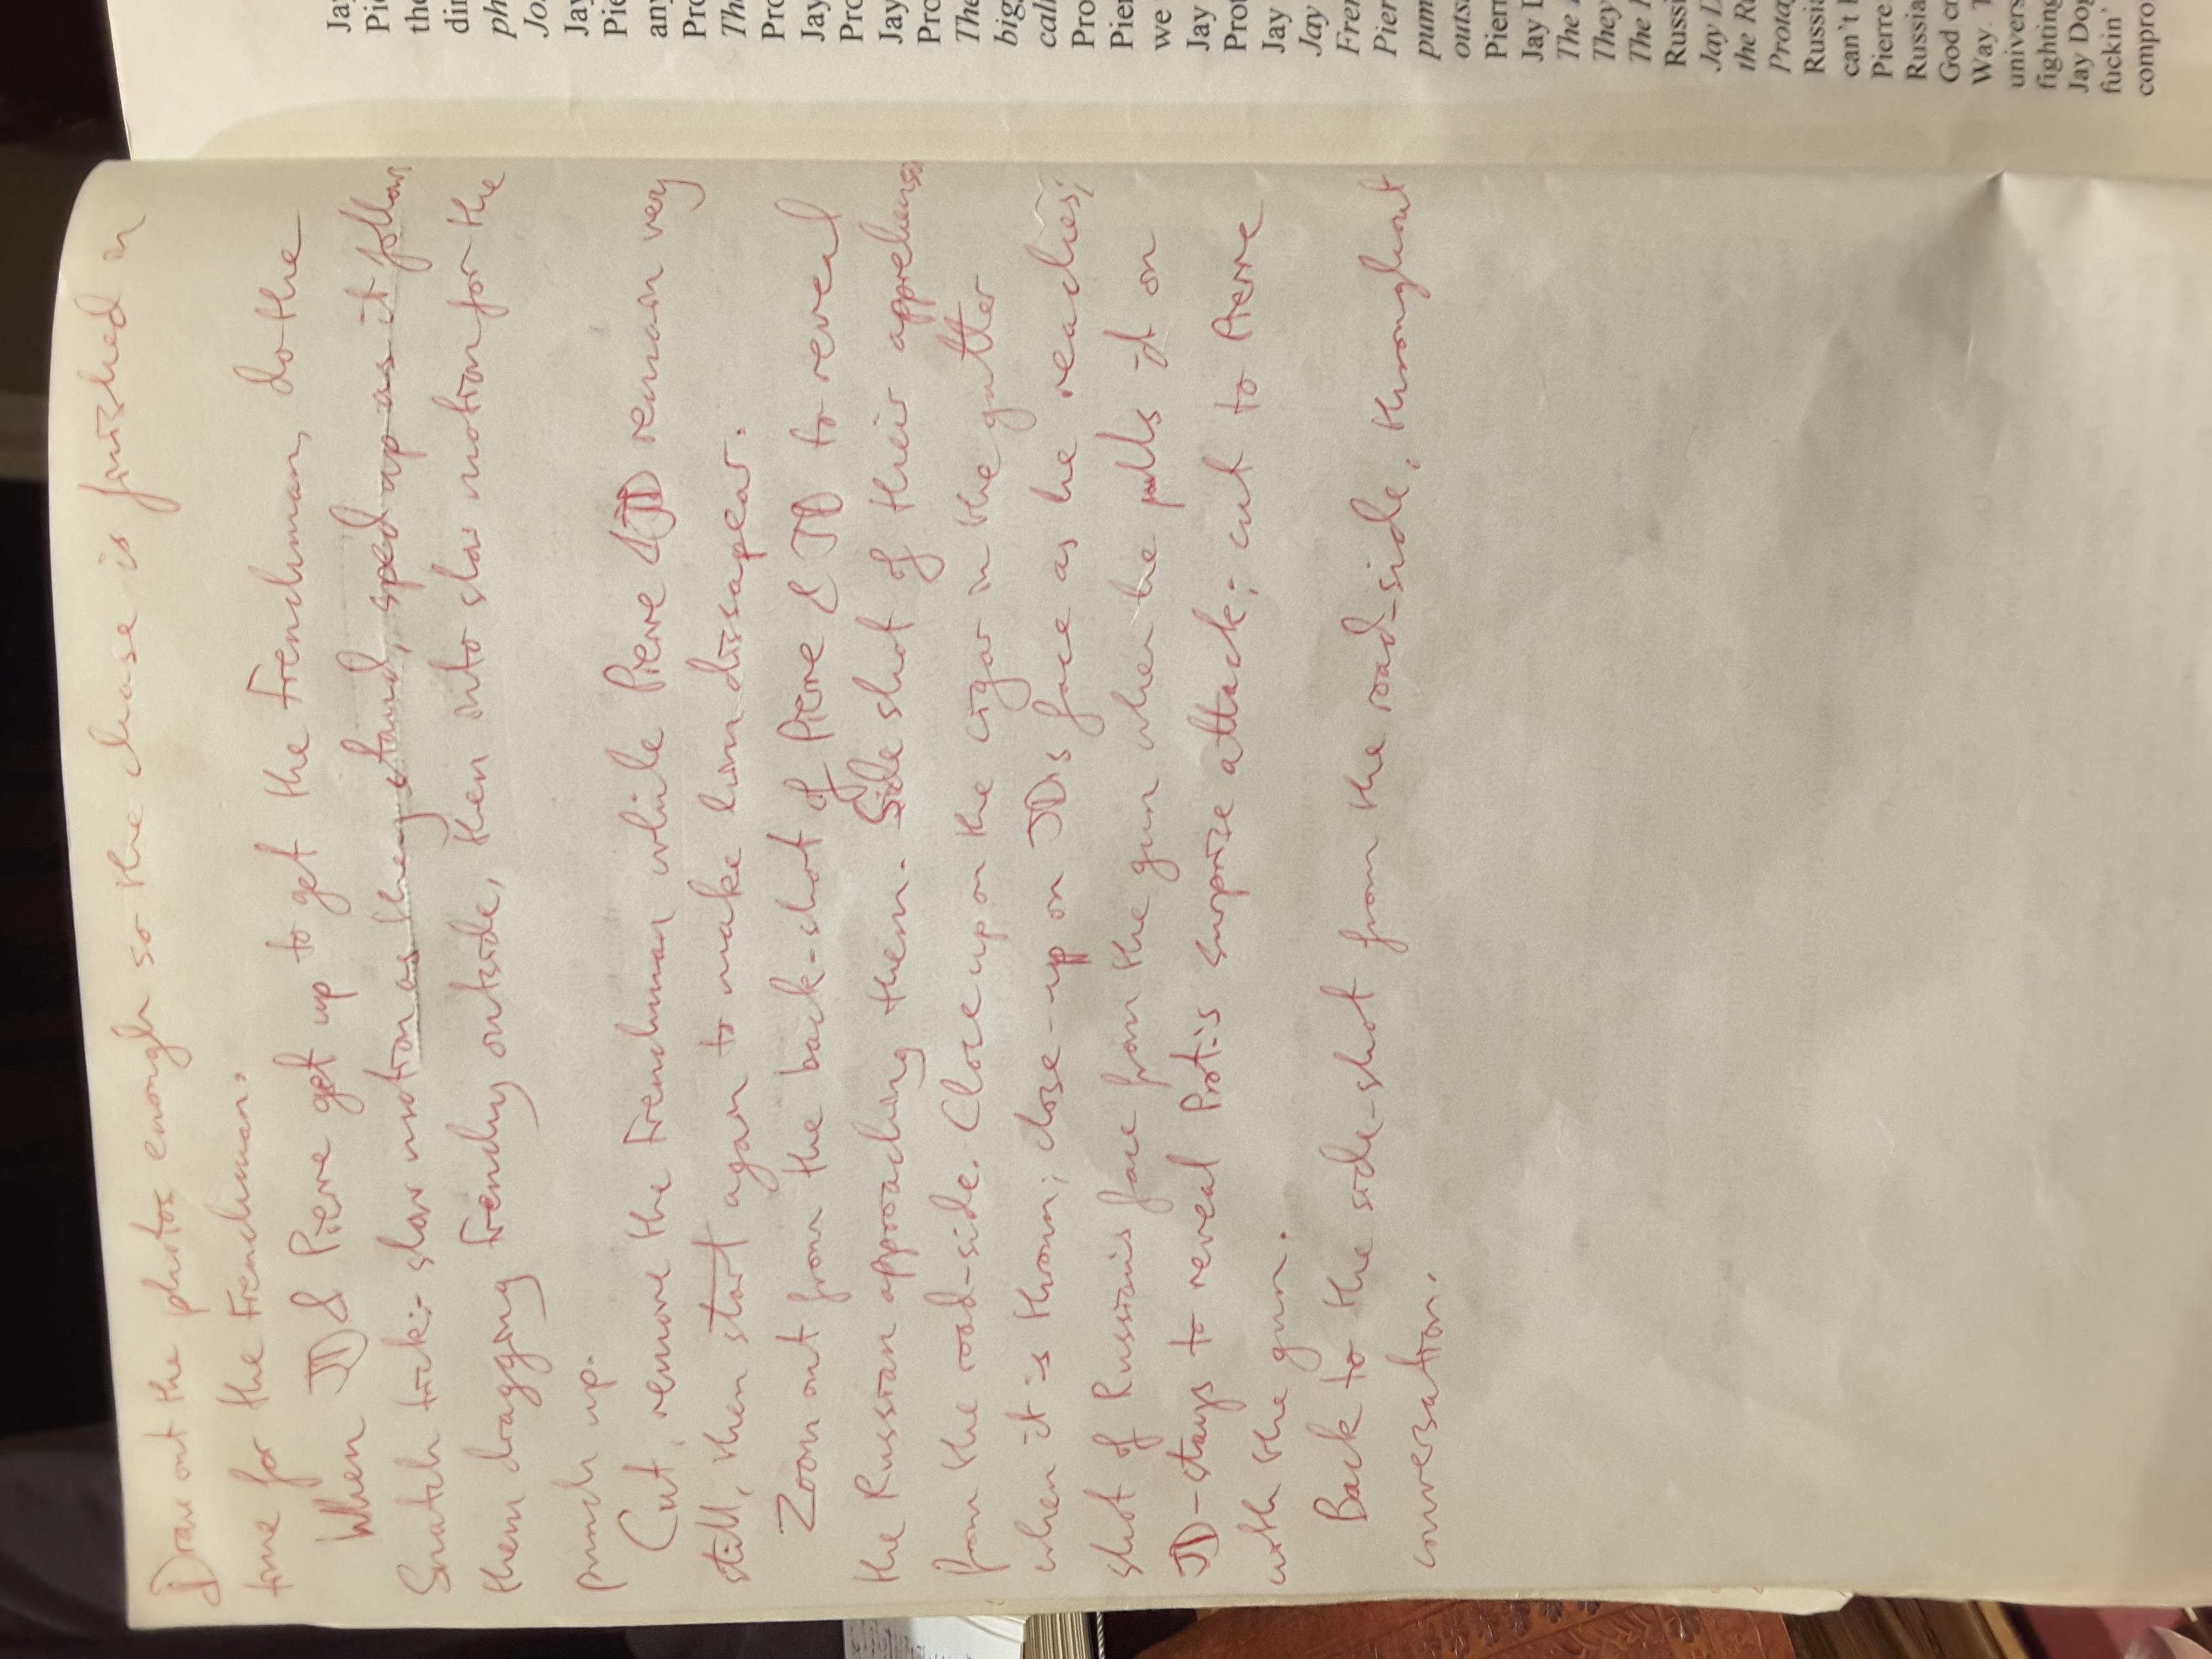 Draw out the photos enough so the chase is finished in
time for the Frenchman.
When JD & Pierre get up to get the Frenchman, do the
Snatch trick:- slow motion as they stand, sped up as it follows
them dragging Frenchy outside, then into slow motion for the
punch up.
Cut, remove the Frenchman while Pierre & JD remain very
still, then start again to make him dissapear.
Zoom out from the back-shot of Pierre & JD to reveal
the Russian approaching them. Side shot of their apprehension
from the road-side. Close up on the cigar in the gutter
when it is thrown; close-up on JD's face as he reaches;
shot of Russian's face from the gun when he pulls it on
JD - stays to reveal Prot's surprise attack; cut to Pierre
with the gun.
Back to the side-shot from the road-side, throughout
conversation.
Jay
Pie
the
din
ph
Jo
Jay
Pie
any
Pro
The
Pro
Jay
Pro
Jay
Pro
The
big
call
Pro
Pier
we
Jay
Prot
Jay
Jay
Fren
Pier
pum
outs
Pierr
Jay D
The
They
The
Russi
Jay D
the Ru
Prota
Russia
can't
Pierre
Russia
God cr
Way. T
univers
fighting
Jay Dog
fuckin'
compro